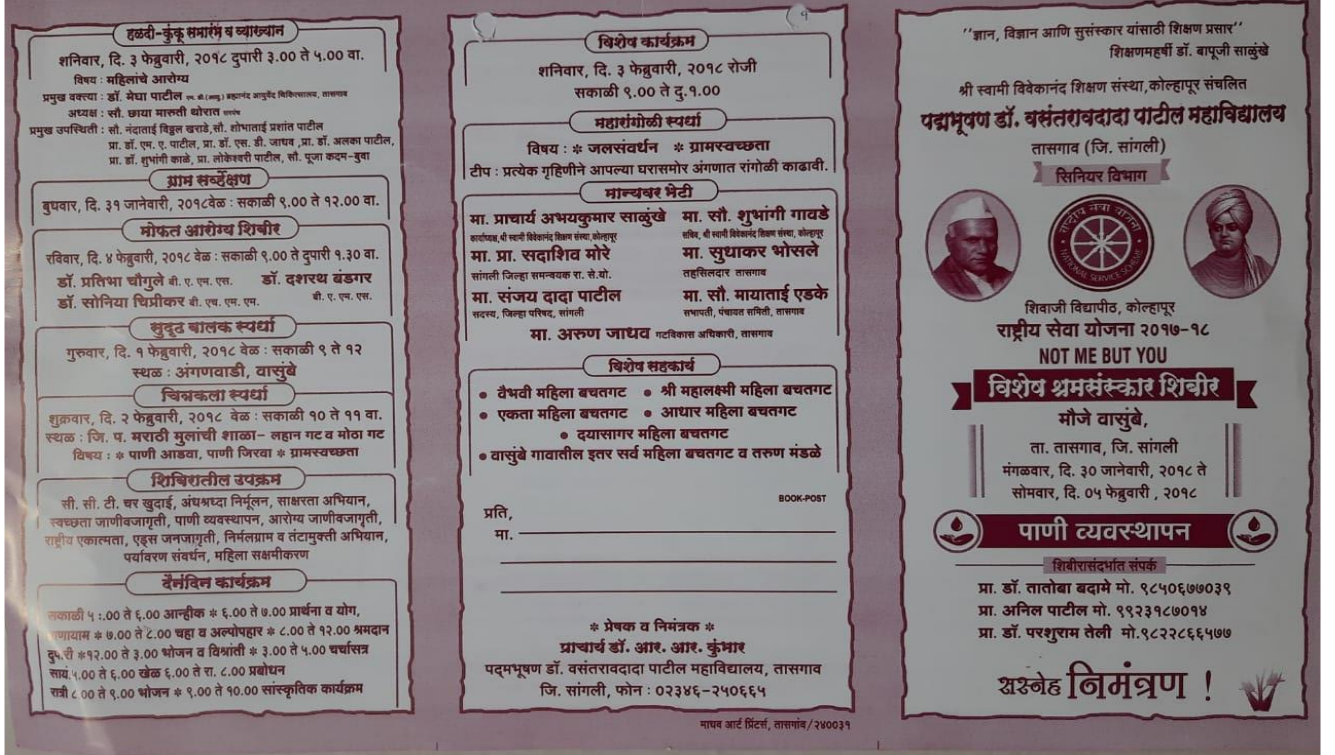 हळदी-कुंकू समारंभ व व्याख्यान
शनिवार, दि. ३ फेब्रुवारी, २०१८ दुपारी ३.०० ते ५.०० वा.
विषय : महिलांचे आरोग्य
प्रमुख वक्त्या : डॉ. मेघा पाटील एम. डी.(आयु.) ब्रह्मानंद आयुर्वेद चिकित्सालय, तासगाव
अध्यक्ष : सौ. छाया मारुती थोरात सरपंच
प्रमुख उपस्थिती : सौ. नंदाताई विठ्ठल खराडे,सौ. शोभाताई प्रशांत पाटील
प्रा. डॉ. एम. ए. पाटील, प्रा. डॉ. एस. डी. जाधव ,प्रा. डॉ. अलका पाटील,
प्रा. डॉ. शुभांगी काळे, प्रा. लोकेश्वरी पाटील, सौ. पूजा कदम-बुवा
ग्राम सर्व्हेक्षण
बुधवार, दि. ३१ जानेवारी, २०१८वेळ : सकाळी ९.०० ते १२.०० वा.
मोफत आरोग्य शिबीर
रविवार, दि. ४ फेब्रुवारी, २०१८ वेळ : सकाळी ९.०० ते दुपारी १.३० वा.
डॉ. प्रतिभा चौगुले बी. ए. एम. एस. डॉ. दशरथ बंडगर
डॉ. सोनिया चिप्रीकर बी. एच. एम. एम. बी. ए. एम. एस.
सुदृढ बालक स्पर्धा
गुरुवार, दि. १ फेब्रुवारी, २०१८ वेळ : सकाळी ९ ते १२
स्थळ : अंगणवाडी, वासुंबे
चित्रकला स्पर्धा
शुक्रवार, दि. २ फेब्रुवारी, २०१८ वेळ : सकाळी १० ते ११ वा.
स्थळ : जि. प. मराठी मुलांची शाळा- लहान गट व मोठा गट
विषय : * पाणी आडवा, पाणी जिरवा * ग्रामस्वच्छता
शिबिरातील उपक्रम
सी. सी. टी. चर खुदाई, अंधश्रध्दा निर्मूलन, साक्षरता अभियान,
स्वच्छता जाणीवजागृती, पाणी व्यवस्थापन, आरोग्य जाणीवजागृती,
राष्ट्रीय एकात्मता, एड्स जनजागृती, निर्मलग्राम व तंटामुक्ती अभियान,
पर्यावरण संवर्धन, महिला सक्षमीकरण
दैनंदिन कार्यक्रम
सकाळी ५ :.०० ते ६.०० आन्हीक * ६.०० ते ७.०० प्रार्थना व योग,
* ७.०० ते ८.०० चहा व अल्पोपहार * ८.०० ते १२.०० श्रमदान
दुपारी *१२.०० ते ३.०० भोजन व विश्रांती * ३.०० ते ५.०० चर्चासत्र
सायं.५.०० ते ६.०० खेळ ६.०० ते रा. ८.०० प्रबोधन
रात्री ८.०० ते ९.०० भोजन * ९.०० ते १०.०० सांस्कृतिक कार्यक्रम
१
विशेष कार्यक्रम
शनिवार, दि. ३ फेब्रुवारी, २०१८ रोजी
सकाळी ९.०० ते दु.१.००
महारांगोळी स्पर्धा
विषय : * जलसंवर्धन * ग्रामस्वच्छता
टीप : प्रत्येक गृहिणीने आपल्या घरासमोर अंगणात रांगोळी काढावी.
मान्यवर भेटी
मा. प्राचार्य अभयकुमार साळुंखे मा. सौ. शुभांगी गावडे
कार्याध्यक्ष,श्री स्वामी विवेकानंद शिक्षण संस्था,कोल्हापूर सचिव, श्री स्वामी विवेकानंद शिक्षण संस्था, कोल्हापूर
मा. प्रा. सदाशिव मोरे मा. सुधाकर भोसले
सांगली जिल्हा समन्वयक रा. से.यो. तहसिलदार तासगाव
मा. संजय दादा पाटील मा. सौ. मायाताई एडके
सदस्य, जिल्हा परिषद, सांगली सभापती, पंचायत समिती, तासगाव
मा. अरुण जाधव गटविकास अधिकारी, तासगाव
विशेष सहकार्य
• वैभवी महिला बचतगट • श्री महालक्ष्मी महिला बचतगट
• एकता महिला बचतगट • आधार महिला बचतगट
• दयासागर महिला बचतगट
• वासुंबे गावातील इतर सर्व महिला बचतगट व तरुण मंडळे
BOOK-POST
प्रति,
मा.
* प्रेषक व निमंत्रक *
प्राचार्य डॉ. आर. आर. कुंभार
पद्मभूषण डॉ. वसंतरावदादा पाटील महाविद्यालय, तासगाव
जि. सांगली, फोन : ०२३४६-२५०६६५
माधव आर्ट प्रिंटर्स, तासगांव/२४००३१
''ज्ञान, विज्ञान आणि सुसंस्कार यांसाठी शिक्षण प्रसार''
शिक्षणमहर्षी डॉ. बापूजी साळुंखे
श्री स्वामी विवेकानंद शिक्षण संस्था,कोल्हापूर संचलित
पद्मभूषण डॉ. वसंतरावदादा पाटील महाविद्यालय
तासगाव (जि. सांगली)
सिनियर विभाग
राष्ट्रीय सेवा योजना
NATIONAL SERVICE SCHEME
शिवाजी विद्यापीठ, कोल्हापूर
राष्ट्रीय सेवा योजना २०१७-१८
NOT ME BUT YOU
विशेष श्रमसंस्कार शिबीर
मौजे वासुंबे,
ता. तासगाव, जि. सांगली
मंगळवार, दि. ३० जानेवारी, २०१८ ते
सोमवार, दि. ०५ फेब्रुवारी , २०१८
पाणी व्यवस्थापन
शिबीरासंदर्भात संपर्क
प्रा. डॉ. तातोबा बदामे मो. ९८५०६७७०३९
प्रा. अनिल पाटील मो. ९९२३१८७०१४
प्रा. डॉ. परशुराम तेली मो.९८२२८६६५७७
सस्नेह निमंत्रण !